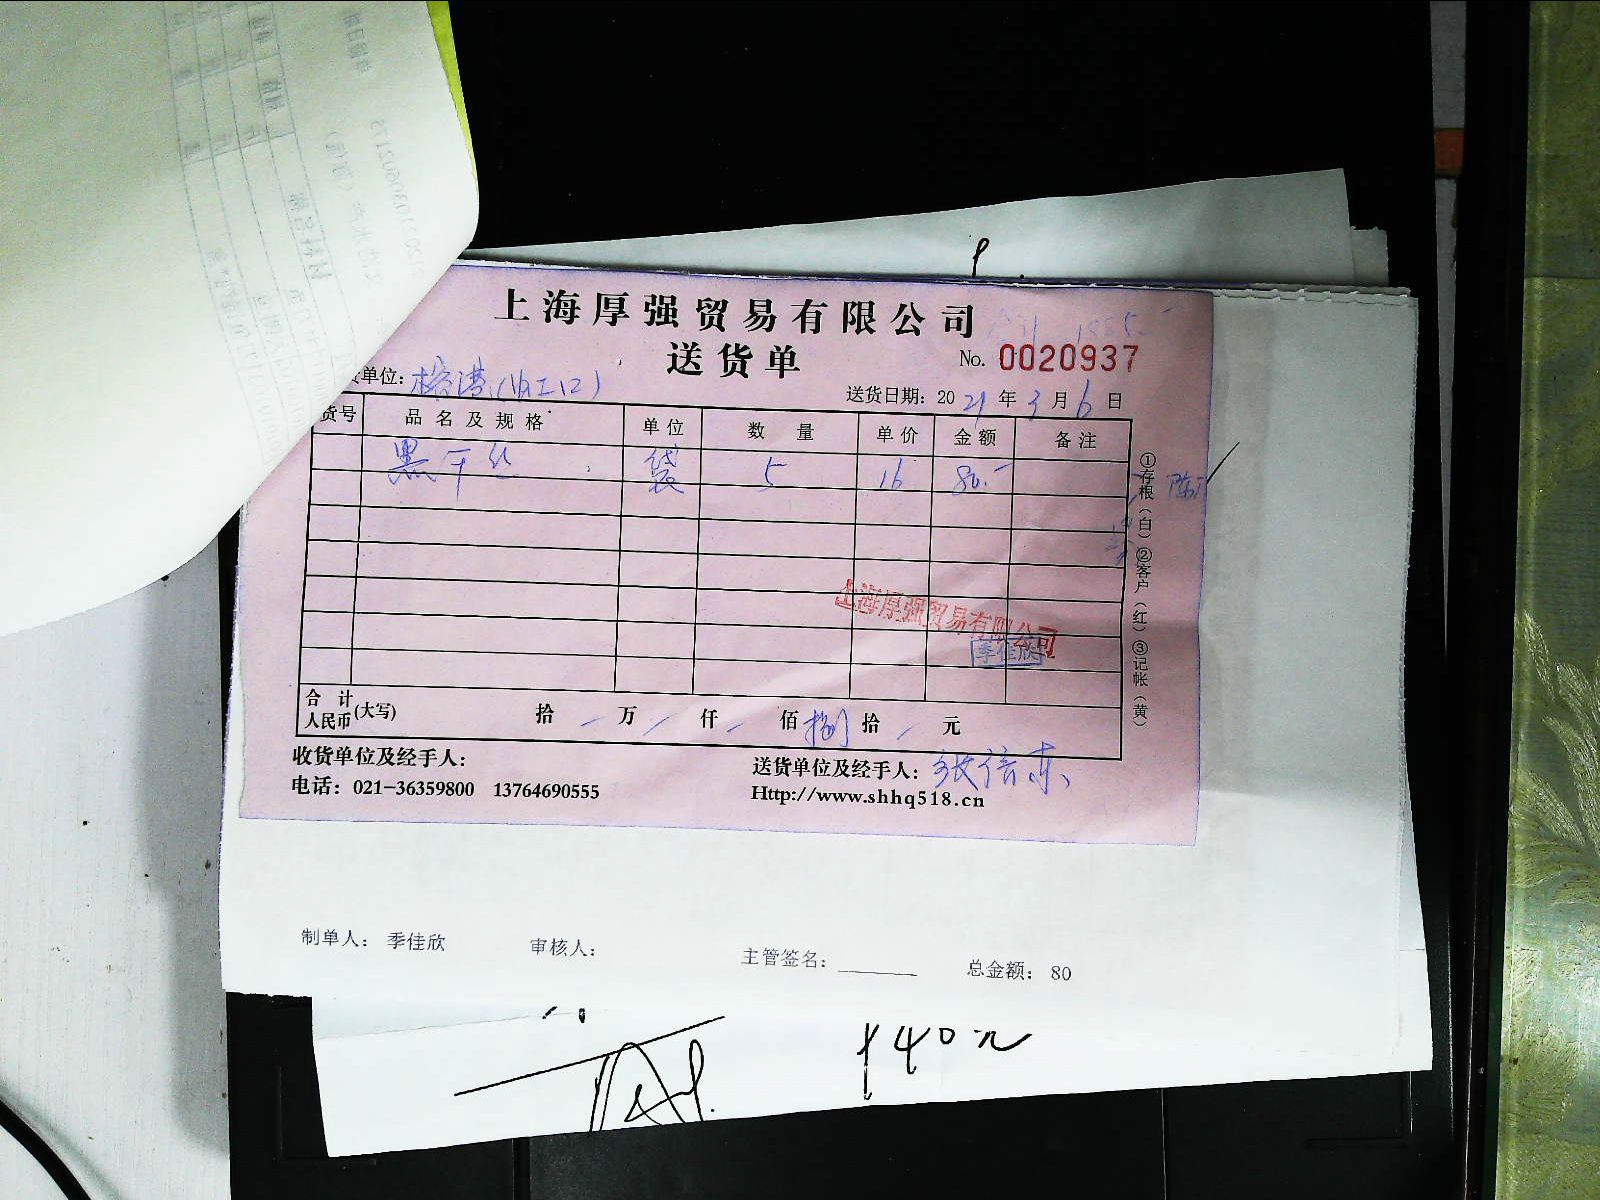 上海厚强贸易有限公司
送货单
No. 0020937
单位:
送货日期: 2021年3月6日
货号 品名及规格 单位 数量 单价 金额 备注
黑干丝 袋 5 16 80.-
①存根(白)②客户(红)③记帐(黄)
上海厚强贸易有限公司
季佳欣
合计人民币(大写) 拾 万 仟 佰 捌 拾 元
收货单位及经手人:
送货单位及经手人:
电话: 021-36359800 13764690555
Http://www.shhq518.cn
制单人: 季佳欣 审核人: 主管签名: 总金额: 80
140元